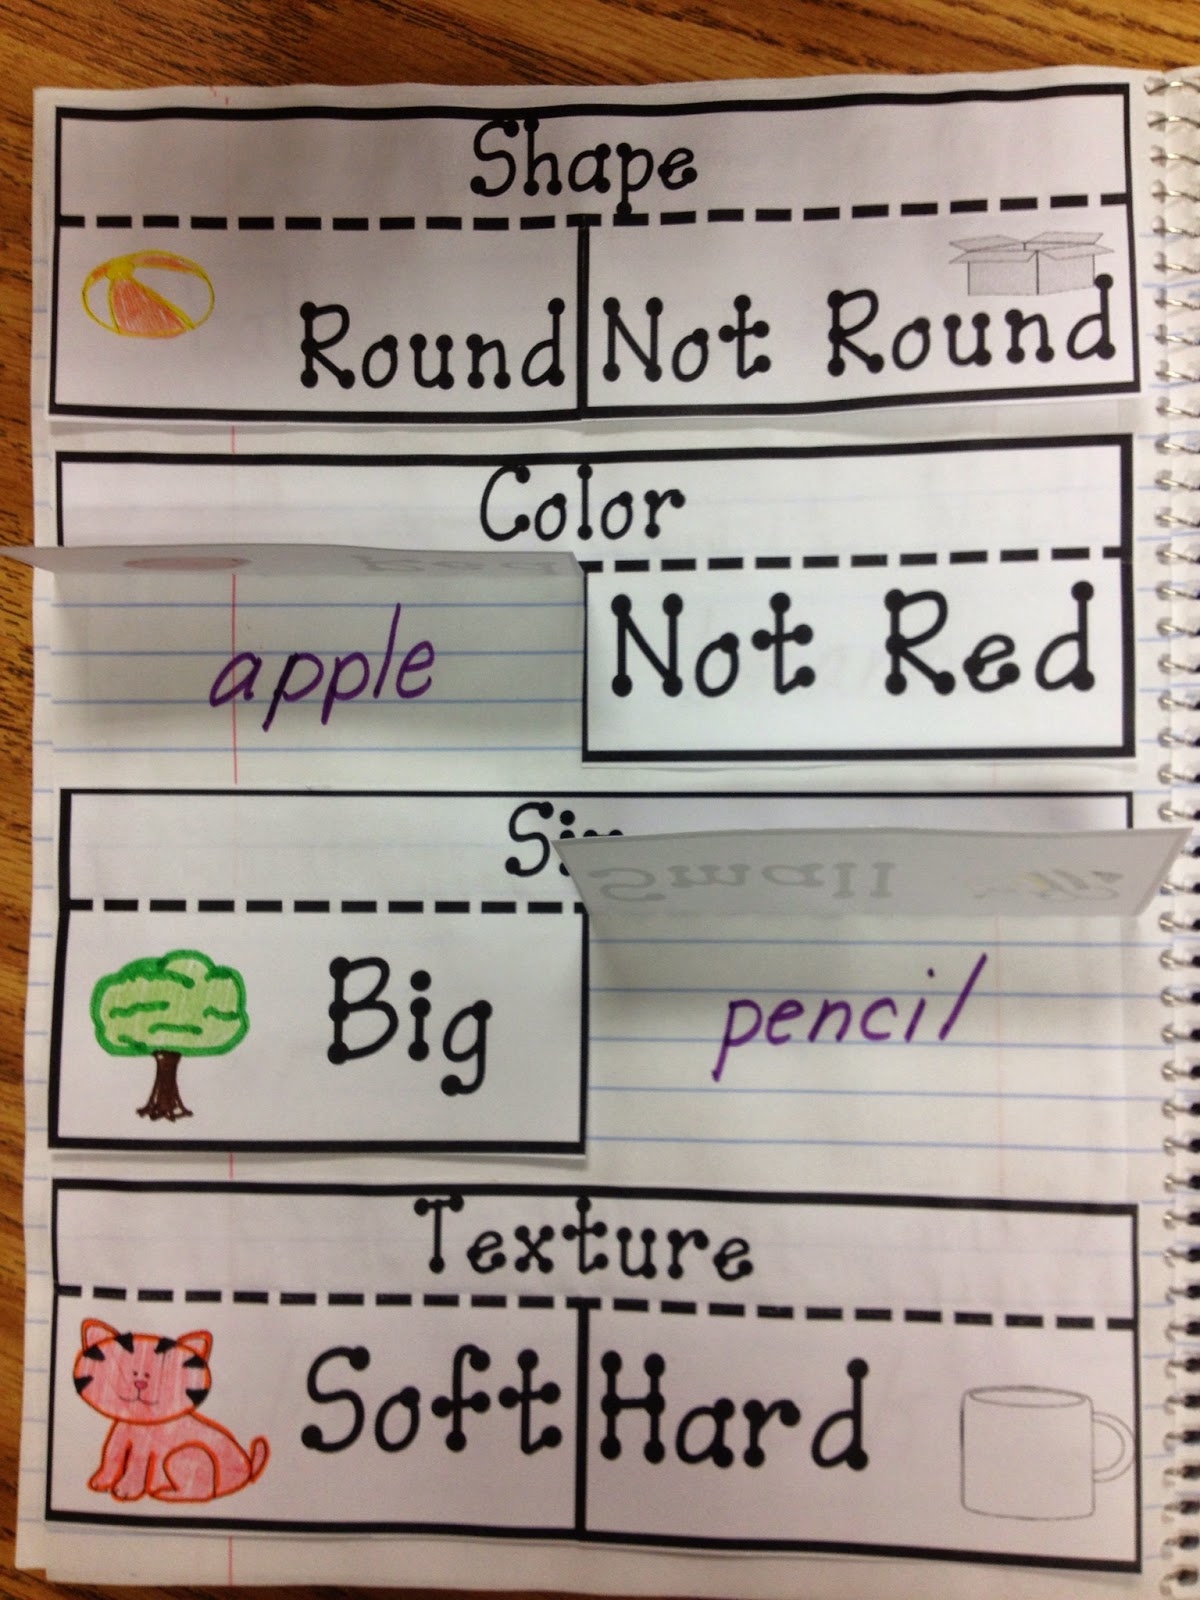 Shape
Round Not Round
Color
Red
apple Not Red
Small
Big pencil
Texture
Soft Hard